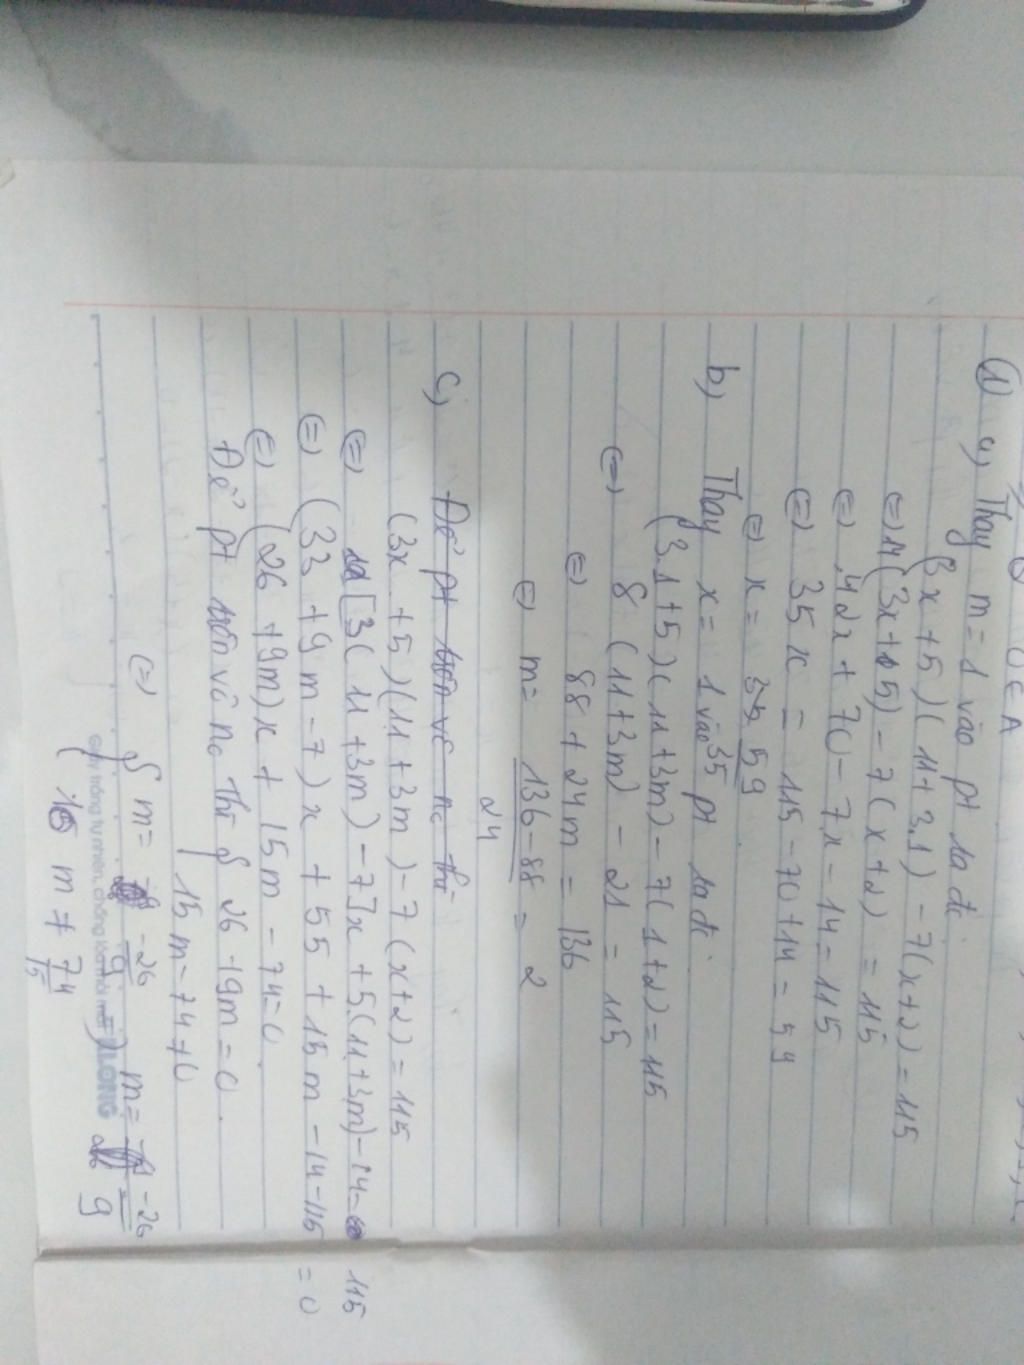 DEA
(1) a) Thay m = 1 vào pt ta đc
(3x + 5)(11 + 3.1) - 7(x + 2) = 115
⇔ 14(3x + 5) - 7(x + 2) = 115
⇔ 42x + 70 - 7x - 14 = 115
⇔ 35x = 115 - 70 + 14 = 59
⇔ x = 59/35
b) Thay x = 1 vào pt ta đc
(3.1 + 5)(11 + 3m) - 7(1 + 2) = 115
⇔ 8(11 + 3m) - 21 = 115
⇔ 88 + 24m = 136
⇔ m = (136 - 88)/24 = 2
c) Để pt luôn vô nc thì
(3x + 5)(11 + 3m) - 7(x + 2) = 115
⇔ [3(11 + 3m) - 7]x + 5(11 + 3m) - 14 = 115
⇔ (33 + 9m - 7)x + 55 + 15m - 14 - 115 = 0
⇔ (26 + 9m)x + 15m - 74 = 0
Để pt vô nc thì { 26 + 9m = 0
15m - 74 ≠ 0
⇔ { m = -26/9 ⇒ m = -26/9
m ≠ 74/15
Giấy trắng tự nhiên, chống lóa mỏi mắt